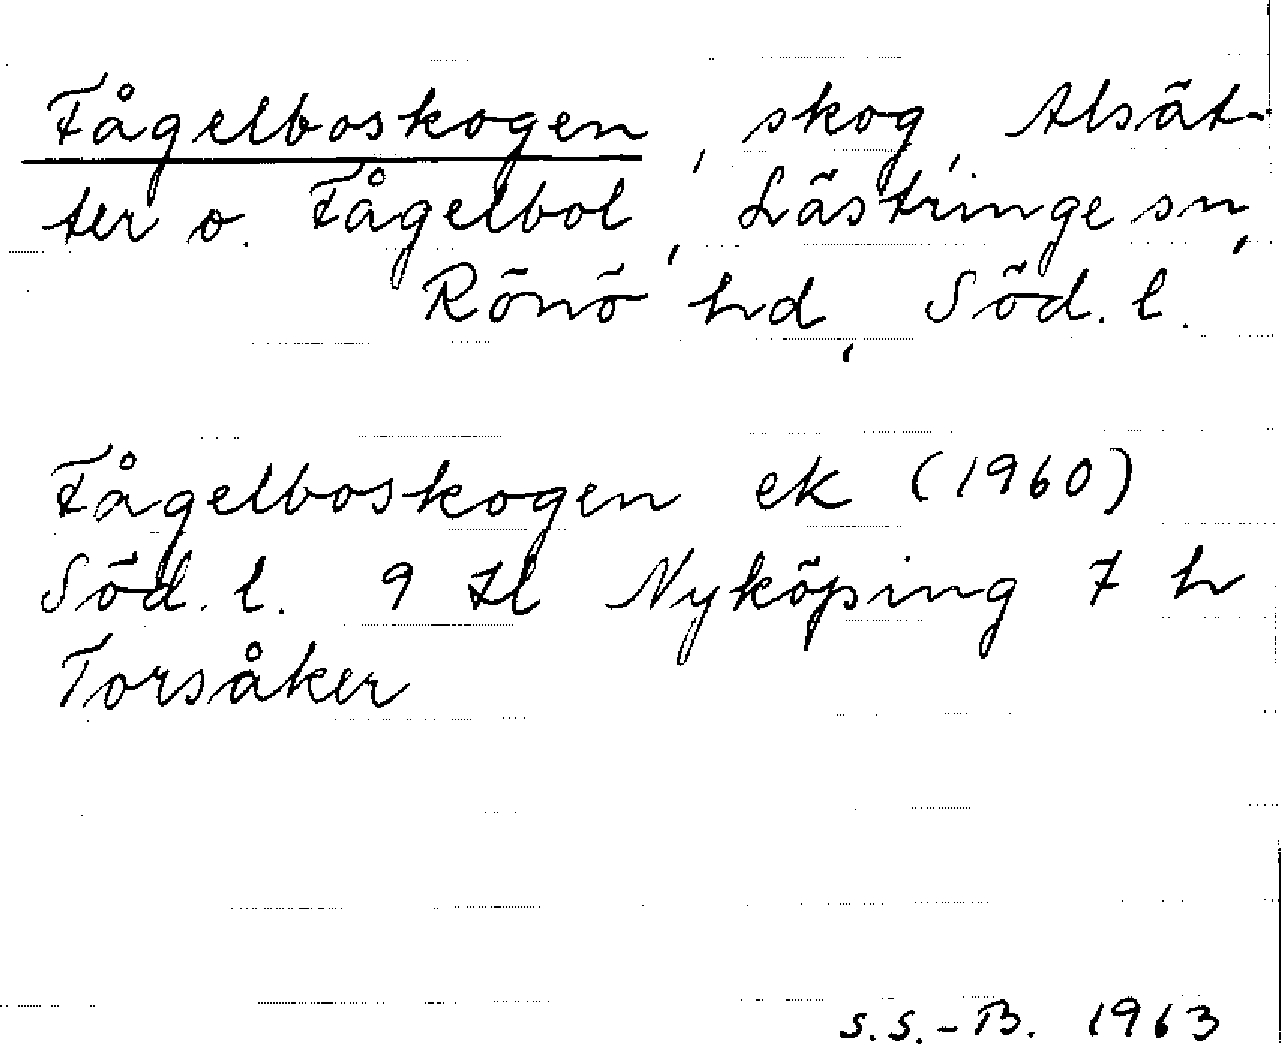 Fågelboskogen, skog, Alsät-
ter o. Fågelbol, Lästringe sn,
Rönö hd, Söd. l.
Fågelboskogen ek (1960)
Söd. l. 9 Il Nyköping 7 h
Torsåker
S.S.-B. 1963